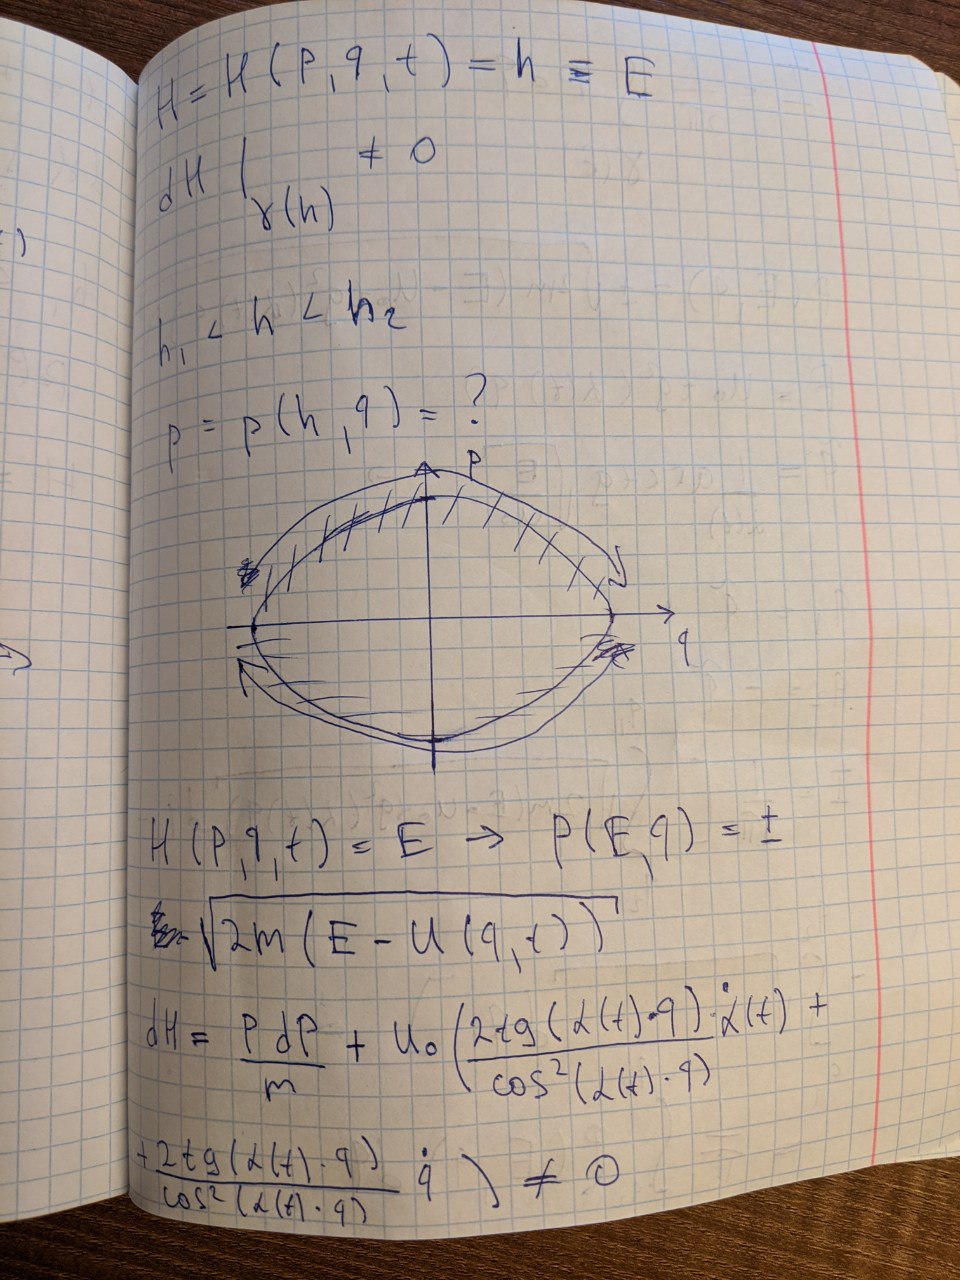 H = H(p, q, t) = h ≡ E
dH |γ(h) ≠ 0
h₁ < h < h₂
p = p(h, q) = ?
p
q
H(p, q, t) = E → p(E, q) = ±
√(2m(E - U(q, t)))
dH = p dp / m + U₀ (2tg(α(t)·q) / cos²(α(t)·q) · α̇(t) +
+ 2tg(α(t)·q) / cos²(α(t)·q) q̇) ≠ 0